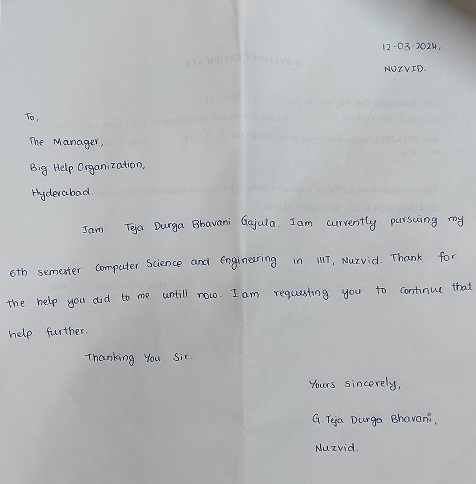 12-03-2024,
NUZVID.
To,
The Manager,
Big Help Organization,
Hyderabad.
Iam Teja Durga Bhavani Gajula. Iam currently pursuing my
6th semester Computer Science and Engineering in IIIT, Nuzvid. Thank for
the help you did to me untill now. I am requesting you to continue that
help further.
Thanking You Sir.
Yours sincerely,
G. Teja Durga Bhavani,
Nuzvid.